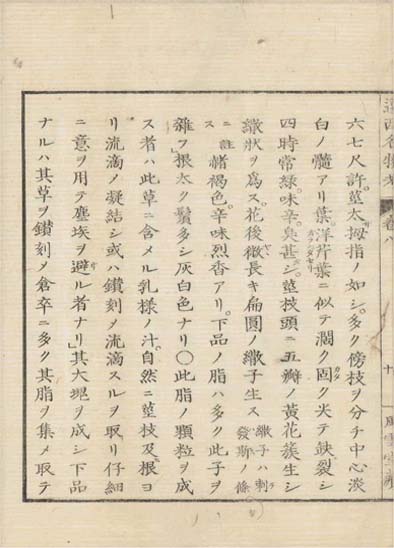 六七尺許。莖太拇指ノ如シ。多ク傍枝ヲ分チ中心淡
白ノ髓アリ葉。洋芹葉ニ似テ濶ク固ク光テ鈌裂シ
四時常綠。味辛。臭甚シ。莖枝頭ニ五瓣ノ黄花簇生シ
繖狀ヲ爲ス。花後微長キ扁圓ノ繖子生ス 繖子ハ刺發斯ノ條
ニ註ス 赭褐色。辛味烈香アリ。下品ノ脂ハ多ク此子ヲ
雜フ」根太ク鬚多シ灰白色ナリ〇此脂ノ顆粒ヲ成
ス者ハ此草ニ含メル乳樣ノ汁。自然ニ莖枝及根ヨ
リ流滴ノ凝結シ或ハ鑚刻メ流滴スルヲ取リ仔細
ニ意ヲ用テ塵埃ヲ避ル者ナリ」其大塊ヲ成シ下品
ナルハ其草ヲ鑚刻メ倉卒ニ多ク其脂ヲ集メ取テ